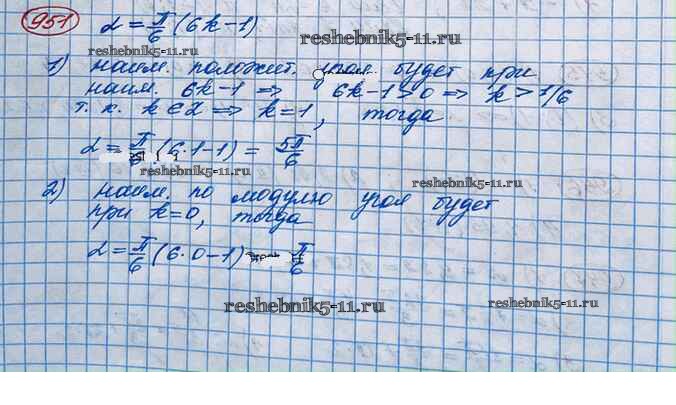 951
α = π/6 (6k-1)
reshebnik5-11.ru
reshebnik5-11.ru
1) наим. положит. угол будет при
наим. 6k-1 => 6k-1>0 => k > 1/6
т. к. k ∈ Z => k=1, тогда
α = π/6 (6·1-1) = 5π/6
reshebnik5-11.ru
2) наим. по модулю угол будет
при k=0, тогда
α = π/6 (6·0-1) = - π/6
reshebnik5-11.ru
reshebnik5-11.ru